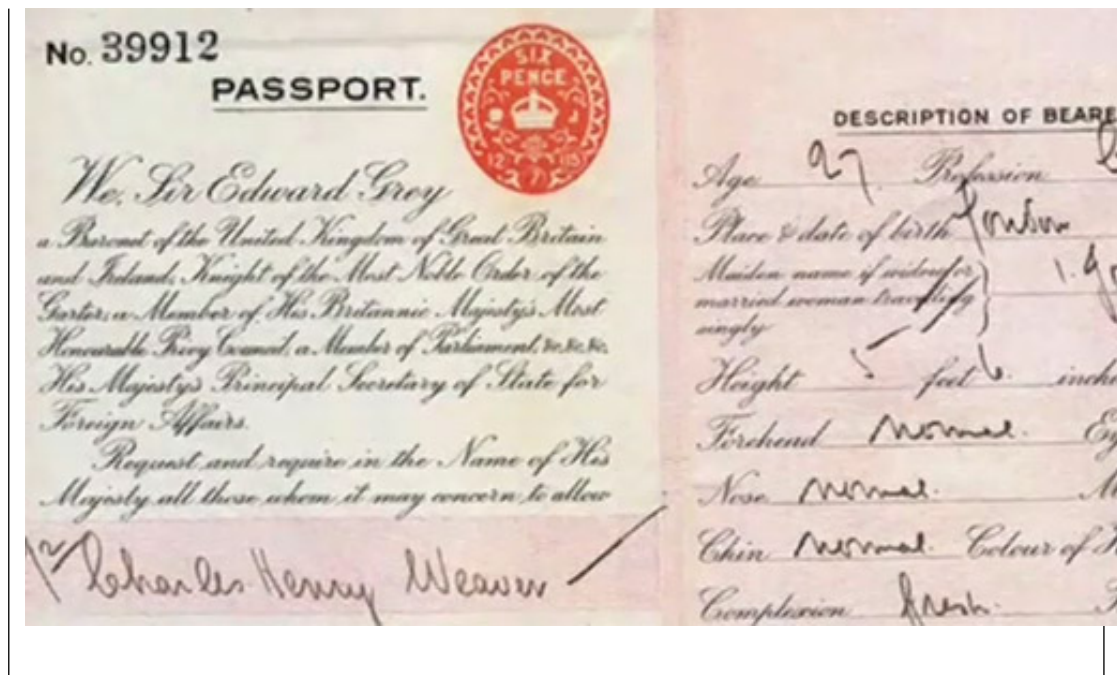 No. 39912
PASSPORT.
SIX
PENCE
12 7 15
We, Sir Edward Grey
a Baronet of the United Kingdom of Great Britain
and Ireland, Knight of the Most Noble Order of the
Garter, a Member of His Britannic Majesty's Most
Honourable Privy Council, a Member of Parliament, &c. &c. &c.
His Majesty's Principal Secretary of State for
Foreign Affairs.
Request and require in the Name of His
Majesty all those whom it may concern to allow
Mr Charles Henry Weaver
DESCRIPTION OF BEARE
Age 27. Profession
Place & date of birth London
Maiden name if widow or
married woman travelling
singly
Height 5 feet 6. inche
Forehead Normal. Ey
Nose Normal.
Chin Normal. Colour of
Complexion fresh.